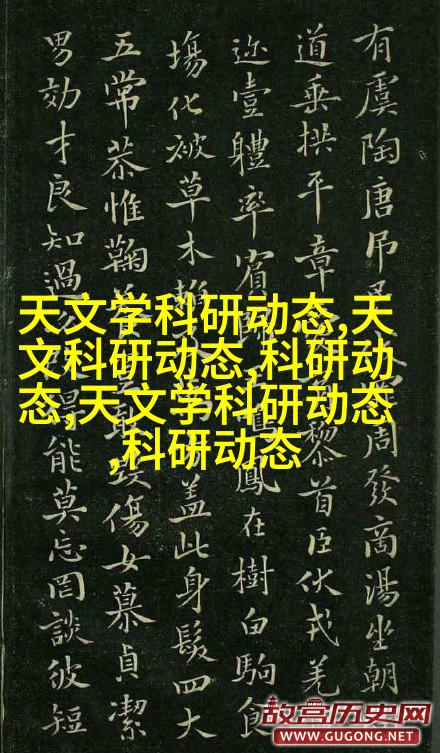 有虞陶唐吊 周發商湯坐朝
道垂拱平章 黎首臣伏戎羌
迩壹體率賓 鳳在樹白駒食
場化被草木 蓋此身髮四大
五常恭惟鞠 敢毀傷女慕貞潔
男効才良知過 得能莫忘罔談彼短
天文学科研动态,天
文科研动态,科研动
态,天文学科研动态
,科研动态
故宫历史网
WWW.GUGONG.NET